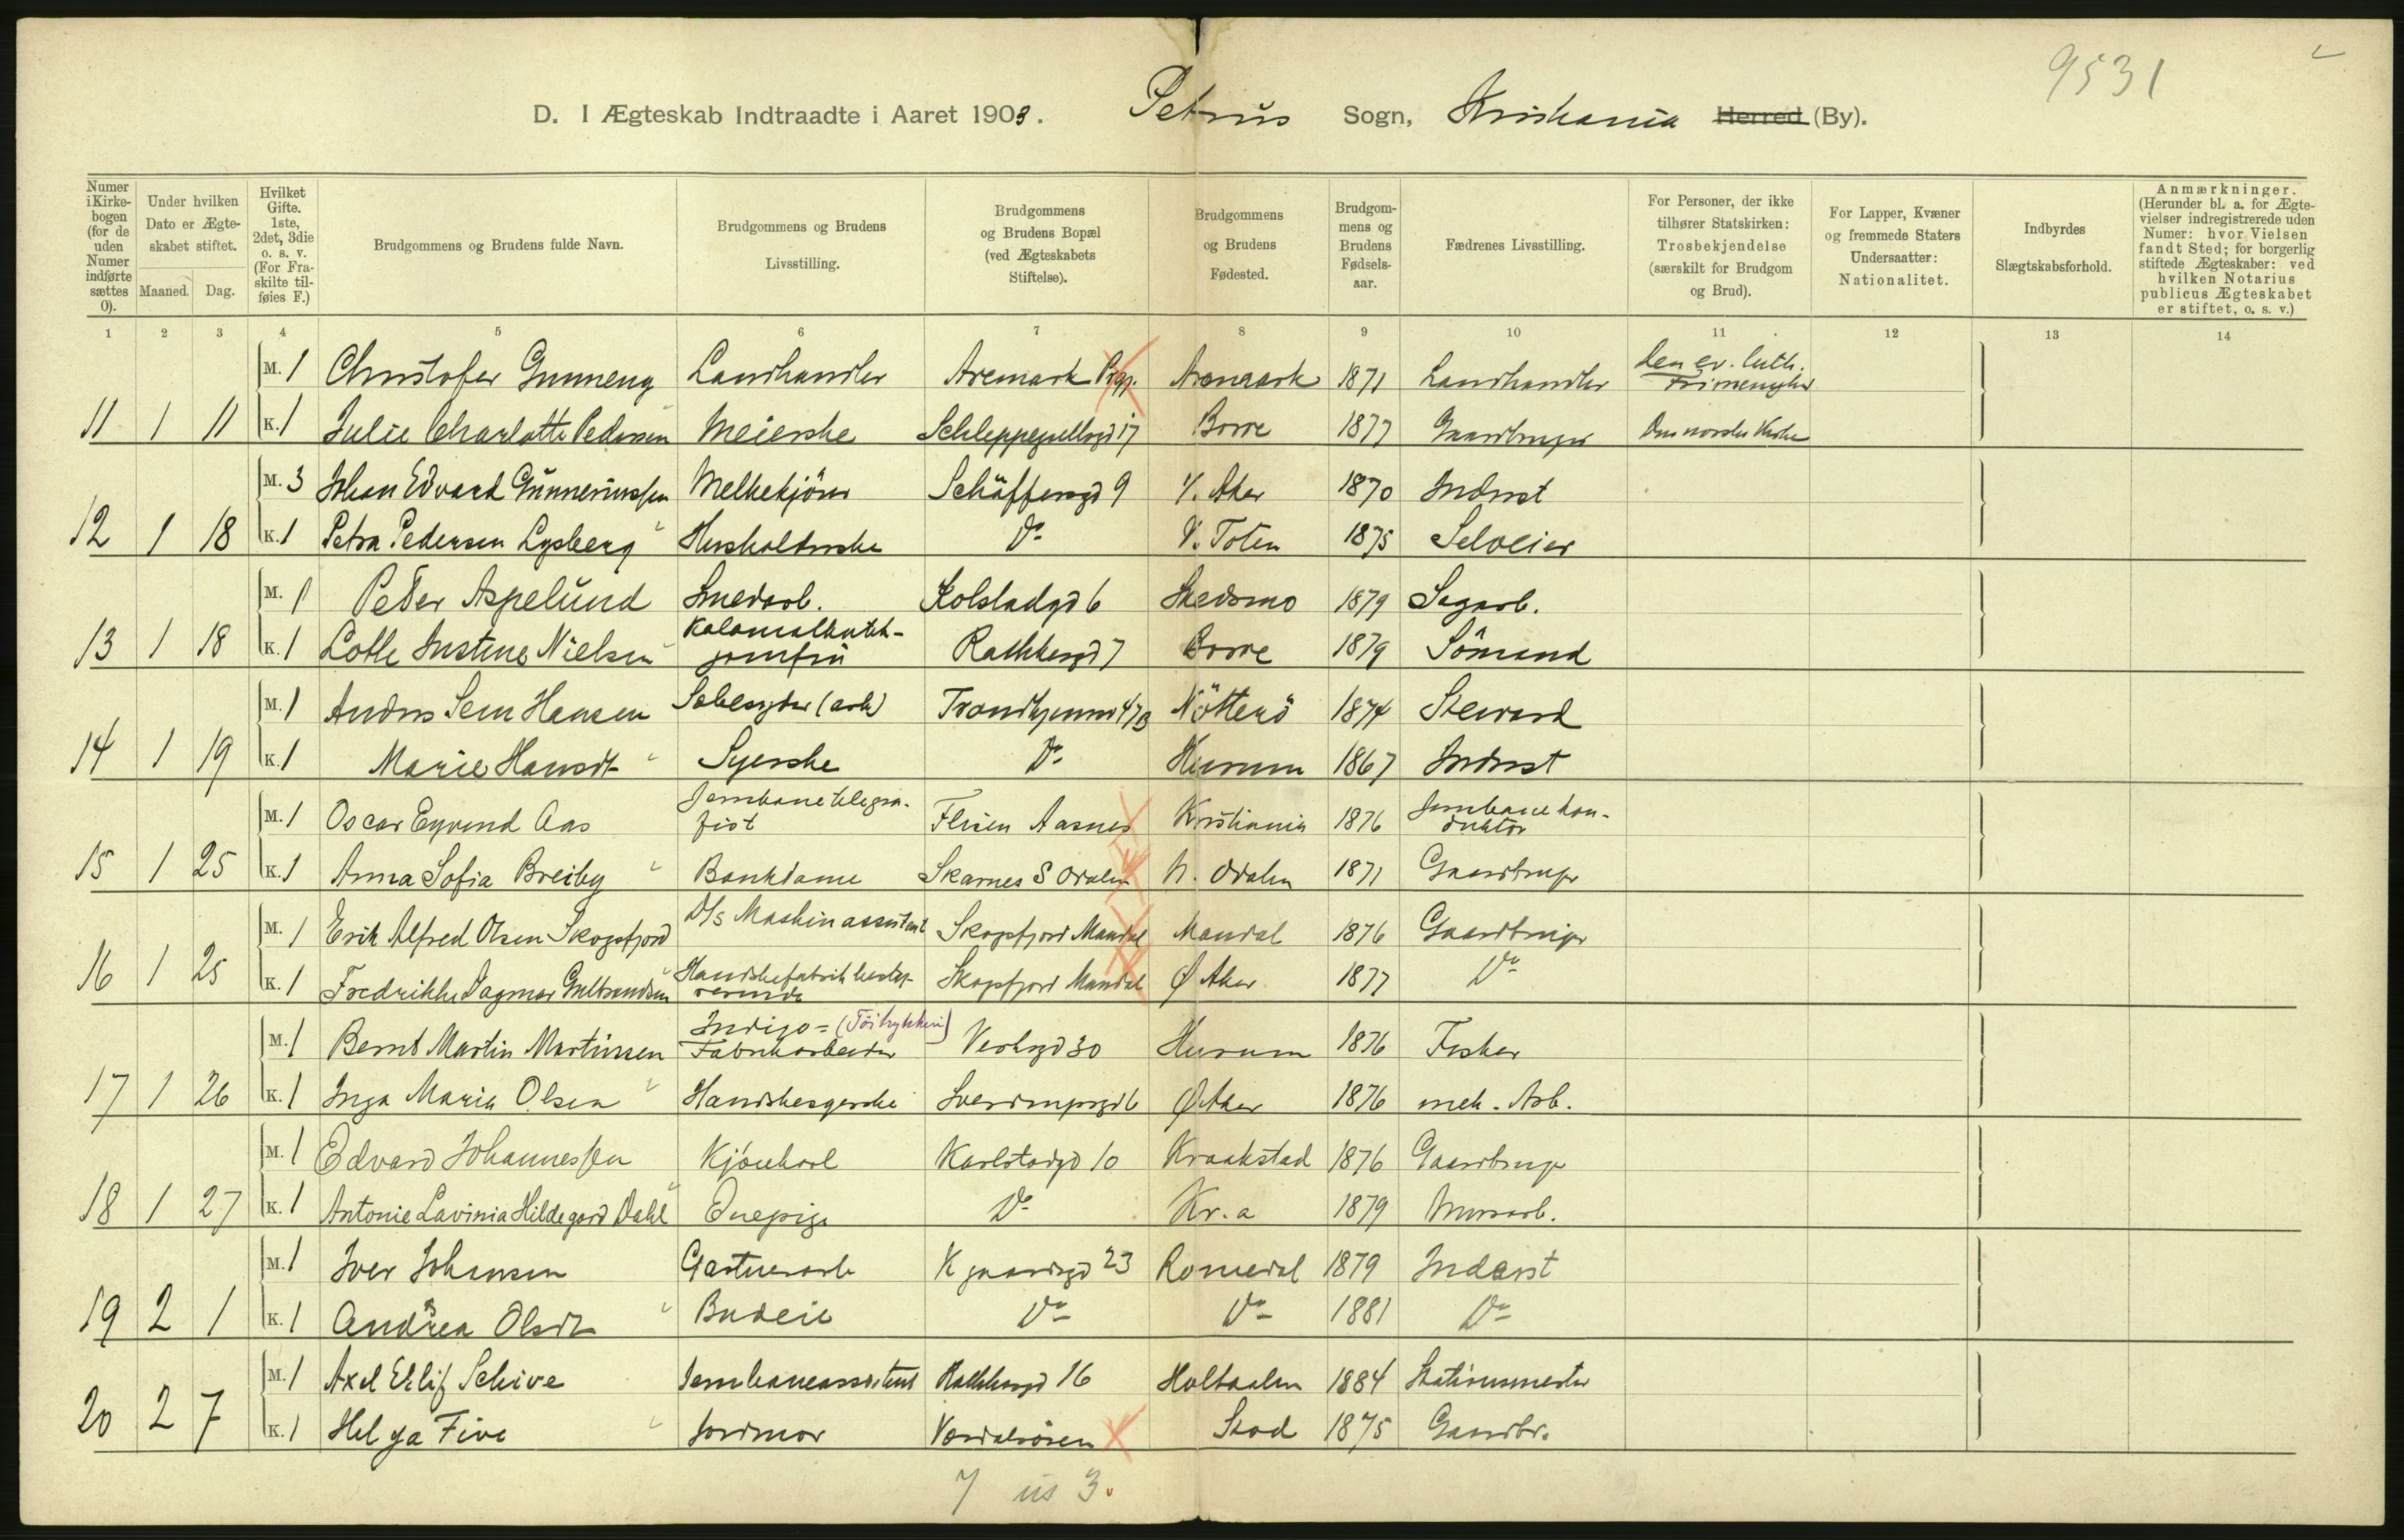 9531
D. I Ægteskab Indtraadte i Aaret 1903. Petrus Sogn, Kristiania Herred (By).
Numer i Kirkebogen (for de uden Numer indførte sættes 0).
Under hvilken Dato er Ægteskabet stiftet.
Maaned. Dag.
Hvilket Gifte. 1ste, 2det, 3die o. s. v. (For Fraskilte tilføies F.)
Brudgommens og Brudens fulde Navn.
Brudgommens og Brudens Livsstilling.
Brudgommens og Brudens Bopæl (ved Ægteskabets Stiftelse).
Brudgommens og Brudens Fødested.
Brudgommens og Brudens Fødselsaar.
Fædrenes Livsstilling.
For Personer, der ikke tilhører Statskirken: Trosbekjendelse (særskilt for Brudgom og Brud).
For Lapper, Kvæner og fremmede Staters Undersaatter: Nationalitet.
Indbyrdes Slægtskabsforhold.
Anmærkninger. (Herunder bl. a. for Ægtevielser indregistrerede uden Numer: hvor Vielsen fandt Sted; for borgerlig stiftede Ægteskaber: ved hvilken Notarius publicus Ægteskabet er stiftet, o. s. v.)
1 2 3 4 5 6 7 8 9 10 11 12 13 14
M. 1 Christofer Gunneng Landhandler Aremark Aremark 1871 Landhandler Den ev. luth. Frimenighed
11 1 11 K. 1 Julie Charlotte Pedersen Meierske Schleppegrellsgd 17 Borre 1877 Gaardbruger Den norske Kirke
M. 3 Johan Edvard Gunneriussen Melkekjører Schäffersgd 9 V. Aker 1870 Inderst
12 1 18 K. 1 Petra Pedersen Lysberg Husholderske Do V. Toten 1875 Selveier
M. 1 Peder Aspelund Smedarb. Kolstadgd 6 Skedsmo 1879 Sagarb.
13 1 18 K. 1 Lotte Justine Nielsen Kolonialbutik-jomfru Rathkesgd 7 Borre 1879 Sömand
M. 1 Anders Sem Hansen (arb) Trondhjemsv 47B Nötterö 1874 Steward
14 1 19 K. 1 Marie Hansdt Syerske Do Hurum 1867 Inderst
M. 1 Oscar Eyvind Aas Jernbanetelegrafist Flisen Aasnes Kristiania 1876 Jernbanekonduktør
15 1 25 K. 1 Anna Sofia Breiby Bankdame Skarnes S Odalen N. Odalen 1871 Gaardbruger
M. 1 Erik Alfred Olsen Skogsfjord D/s Maskinassistent Skogsfjord Mandal Mandal 1876 Gaardbruger
16 1 25 K. 1 Fredrikke Dagmar Gulbrandsen Skogsfjord Mandal Ø Aker 1877 Do
M. 1 Bernt Martin Martinsen Indigo= (Töitrykkeri) Fabrikarbeider Verksgd 30 Hurum 1876 Fisker
17 1 26 K. 1 Inga Marie Olsen Handskesyerske Sverdrupsgd 6 Ø Aker 1876 mek. Arb.
M. 1 Edvard Johannessen Kjörekarl Karlstadgd 10 Kraakstad 1876 Gaardbruger
18 1 27 K. 1 Antonie Lavinia Hildegard Dahl Enepige Do Kr.a 1879 Murarb.
M. 1 Iver Johansen Gartnerarb 23 Romedal 1879 Inderst
19 2 1 K. 1 Andrea Olsdt Budeie Do Do 1881 Do
M. 1 Axel Eilif Schive Jernbaneassistent Rathkesgd 16 Holtaalen 1884 Stationsmester
20 2 7 K. 1 Helga Five Jordmor Verdalsören Stod 1875 Gaardbr.
7 us 3.